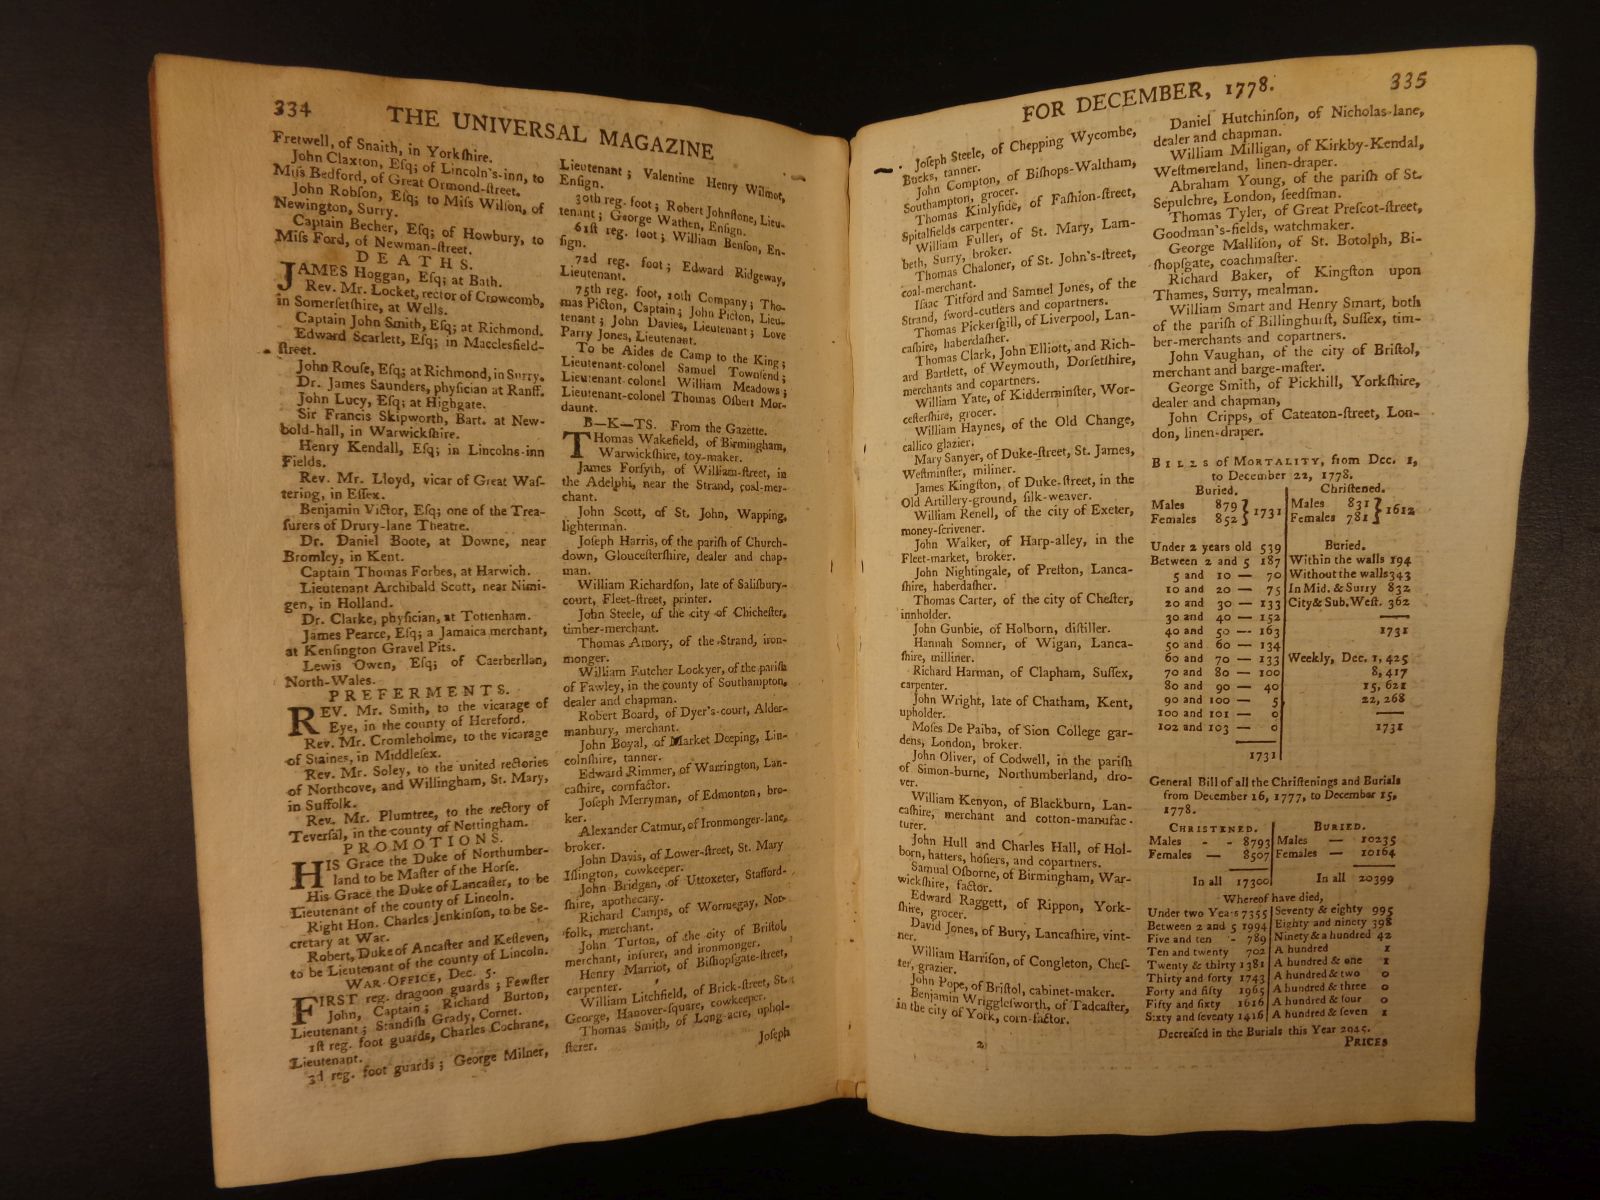 334
THE UNIVERSAL MAGAZINE
Fretwell, of Snaith, in Yorkſhire.
John Claxton, Eſq; of Lincoln's-inn, to
Miſs Bedford, of Great Ormond-ſtreet.
John Robſon, Eſq; to Miſs Wilſon, of
Newington, Surry.
Captain Becher, Eſq; of Howbury, to
Miſs Ford, of Newman-ſtreet.
DEATHS.
JAMES Hoggan, Eſq; at Bath.
Rev. Mr. Locket, rector of Crowcomb,
in Somerſetſhire, at Wells.
Captain John Smith, Eſq; at Richmond.
Edward Scarlett, Eſq; in Macclesfield-
ſtreet.
John Rouſe, Eſq; at Richmond, in Surry.
Dr. James Saunders, phyſician at Ranff.
John Lucy, Eſq; at Highgate.
Sir Francis Skipworth, Bart. at New-
bold-hall, in Warwickſhire.
Henry Kendall, Eſq; in Lincolns-inn
Fields.
Rev. Mr. Lloyd, vicar of Great Waſ-
tering, in Eſſex.
Benjamin Victor, Eſq; one of the Trea-
ſurers of Drury-lane Theatre.
Dr. Daniel Boote, at Downe, near
Bromley, in Kent.
Captain Thomas Forbes, at Harwich.
Lieutenant Archibald Scott, near Nimi-
gen, in Holland.
Dr. Clarke, phyſician, at Tottenham.
James Pearce, Eſq; a Jamaica merchant,
at Kenſington Gravel Pits.
Lewis Owen, Eſq; of Caerberllan,
North-Wales.
PREFERMENTS.
REV. Mr. Smith, to the vicarage of
Eye, in the county of Hereford.
Rev. Mr. Cromleholme, to the vicarage
of Staines, in Middleſex.
Rev. Mr. Soley, to the united rectories
of Northcove, and Willingham, St. Mary,
in Suffolk.
Rev. Mr. Plumtree, to the rectory of
Teverſal, in the county of Nottingham.
PROMOTIONS.
HIS Grace the Duke of Northumber-
land to be Maſter of the Horſe.
His Grace the Duke of Lancaſter, to be
Lieutenant of the county of Lincoln.
Right Hon. Charles Jenkinſon, to be Se-
cretary at War.
Robert, Duke of Ancaſter and Keſteven,
to be Lieutenant of the county of Lincoln.
WAR-OFFICE, Dec. 5.
FIRST reg. dragoon guards; Fewſter
John, Captain; Richard Burton,
Lieutenant; Standiſh Grady, Cornet.
1ſt reg. foot guards, Charles Cochrane,
Lieutenant.
3d reg. foot guards; George Milner,
Lieutenant; Valentine Henry Wilmot,
Enſign.
30th reg. foot; Robert Johnſtone, Lieu-
tenant; George Wathen, Enſign.
61ſt reg. foot; William Benſon, En-
ſign.
72d reg. foot; Edward Ridgeway,
Lieutenant.
75th reg. foot, 10th Company; Tho-
mas Picton, Captain; John Picton, Lieu-
tenant; John Davies, Lieutenant; Love
Parry Jones, Lieutenant.
To be Aides de Camp to the King;
Lieutenant-colonel Samuel Townſend;
Lieutenant-colonel William Meadows;
Lieutenant-colonel Thomas Oſbert Mor-
daunt.
B—K—TS. From the Gazette.
THomas Wakefield, of Birmingham,
Warwickſhire, toy-maker.
James Forſyth, of William-ſtreet, in
the Adelphi, near the Strand, coal-mer-
chant.
John Scott, of St. John, Wapping,
lighterman.
Joſeph Harris, of the pariſh of Church-
down, Glouceſterſhire, dealer and chap-
man.
William Richardſon, late of Saliſbury-
court, Fleet-ſtreet, printer.
John Steele, of the city of Chicheſter,
timber-merchant.
Thomas Amory, of the Strand, iron-
monger.
William Futcher Lockyer, of the pariſh
of Fawley, in the county of Southampton,
dealer and chapman.
Robert Board, of Dyer's-court, Alder-
manbury, merchant.
John Boyal, of Market Deeping, Lin-
colnſhire, tanner.
Edward Rimmer, of Warrington, Lan-
caſhire, cornfactor.
Joſeph Merryman, of Edmonton, bro-
ker.
Alexander Catmur, of Ironmonger-lane,
broker.
John Davis, of Lower-ſtreet, St. Mary
Iſlington, cowkeeper.
John Bridgan, of Uttoxeter, Stafford-
ſhire, apothecary.
Richard Camps, of Wormegay, Nor-
folk, merchant.
John Turton, of the city of Briſtol,
merchant, inſurer, and ironmonger.
Henry Marriot, of Biſhopſgate-ſtreet,
carpenter.
William Litchfield, of Brick-ſtreet, St.
George, Hanover-ſquare, cowkeeper.
Thomas Smith, of Long-acre, uphol-
ſterer.
Joſeph
FOR DECEMBER, 1778.
335
Joſeph Steele, of Chepping Wycombe,
Bucks, tanner.
John Compton, of Biſhops-Waltham,
Southampton, grocer.
Thomas Kinlyſide, of Faſhion-ſtreet,
Spitalfields carpenter.
William Fuller, of St. Mary, Lam-
beth, Surry, broker.
Thomas Chaloner, of St. John's-ſtreet,
coal-merchant.
Iſaac Titford and Samuel Jones, of the
Strand, ſword-cutlers and copartners.
Thomas Pickerſgill, of Liverpool, Lan-
caſhire, haberdaſher.
Thomas Clark, John Elliott, and Rich-
ard Bartlett, of Weymouth, Dorſetſhire,
merchants and copartners.
William Yate, of Kidderminſter, Wor-
ceſterſhire, grocer.
William Haynes, of the Old Change,
callico glazier.
Mary Sanyer, of Duke-ſtreet, St. James,
Weſtminſter, miliner.
James Kingſton, of Duke-ſtreet, in the
Old Artillery-ground, ſilk-weaver.
William Renell, of the city of Exeter,
money-ſcrivener.
John Walker, of Harp-alley, in the
Fleet-market, broker.
John Nightingale, of Preſton, Lanca-
ſhire, haberdaſher.
Thomas Carter, of the city of Cheſter,
innholder.
John Gunbie, of Holborn, diſtiller.
Hannah Somner, of Wigan, Lanca-
ſhire, milliner.
Richard Harman, of Clapham, Suſſex,
carpenter.
John Wright, late of Chatham, Kent,
upholder.
Moſes De Paiba, of Sion College gar-
dens, London, broker.
John Oliver, of Codwell, in the pariſh
of Simon-burne, Northumberland, dro-
ver.
William Kenyon, of Blackburn, Lan-
caſhire, merchant and cotton-manufac-
turer.
John Hull and Charles Hall, of Hol-
born, hatters, hoſiers, and copartners.
Samual Oſborne, of Birmingham, War-
wickſhire, factor.
Edward Raggett, of Rippon, York-
ſhire, grocer.
David Jones, of Bury, Lancaſhire, vint-
ner.
William Harriſon, of Congleton, Cheſ-
ter, grazier.
John Pope, of Briſtol, cabinet-maker.
Benjamin Wriggleſworth, of Tadcaſter,
in the city of York, corn-factor.
2
Daniel Hutchinſon, of Nicholas-lane,
dealer and chapman.
William Milligan, of Kirkby-Kendal,
Weſtmoreland, linen-draper.
Abraham Young, of the pariſh of St.
Sepulchre, London, ſeedſman.
Thomas Tyler, of Great Preſcot-ſtreet,
Goodman's-fields, watchmaker.
George Malliſon, of St. Botolph, Bi-
ſhopſgate, coachmaſter.
Richard Baker, of Kingſton upon
Thames, Surry, mealman.
William Smart and Henry Smart, both
of the pariſh of Billinghurſt, Suſſex, tim-
ber-merchants and copartners.
John Vaughan, of the city of Briſtol,
merchant and barge-maſter.
George Smith, of Pickhill, Yorkſhire,
dealer and chapman,
John Cripps, of Cateaton-ſtreet, Lon-
don, linen-draper.
BILLS of MORTALITY, from Dec. 1,
to December 22, 1778.
Buried. Chriſtened.
Males 879 } 1731 Males 831 } 1612
Females 852 Females 781
Under 2 years old 539 Buried.
Between 2 and 5 187 Within the walls 194
5 and 10 — 70 Without the walls 343
10 and 20 — 75 In Mid. & Surry 832
20 and 30 — 133 City & Sub. Weſt. 362
30 and 40 — 152
40 and 50 — 163 1731
50 and 60 — 134
60 and 70 — 133 Weekly, Dec. 1, 425
70 and 80 — 100 8, 417
80 and 90 — 40 15, 621
90 and 100 — 5 22, 268
100 and 101 — 0
102 and 103 — 0 1731
1731
General Bill of all the Chriſtenings and Burials
from December 16, 1777, to December 15,
1778.
CHRISTENED. BURIED.
Males - - 8793 Males — 10235
Females — 8507 Females — 10164
In all 17300 In all 20399
Whereof have died,
Under two Years 7355 Seventy & eighty 995
Between 2 and 5 1994 Eighty and ninety 398
Five and ten - 789 Ninety & a hundred 42
Ten and twenty 702 A hundred 1
Twenty & thirty 1381 A hundred & one 1
Thirty and forty 1743 A hundred & two 0
Forty and fifty 1965 A hundred & three 0
Fifty and ſixty 1616 A hundred & four 0
Sixty and ſeventy 1416 A hundred & ſeven 1
Decreaſed in the Burials this Year 2945.
PRICES